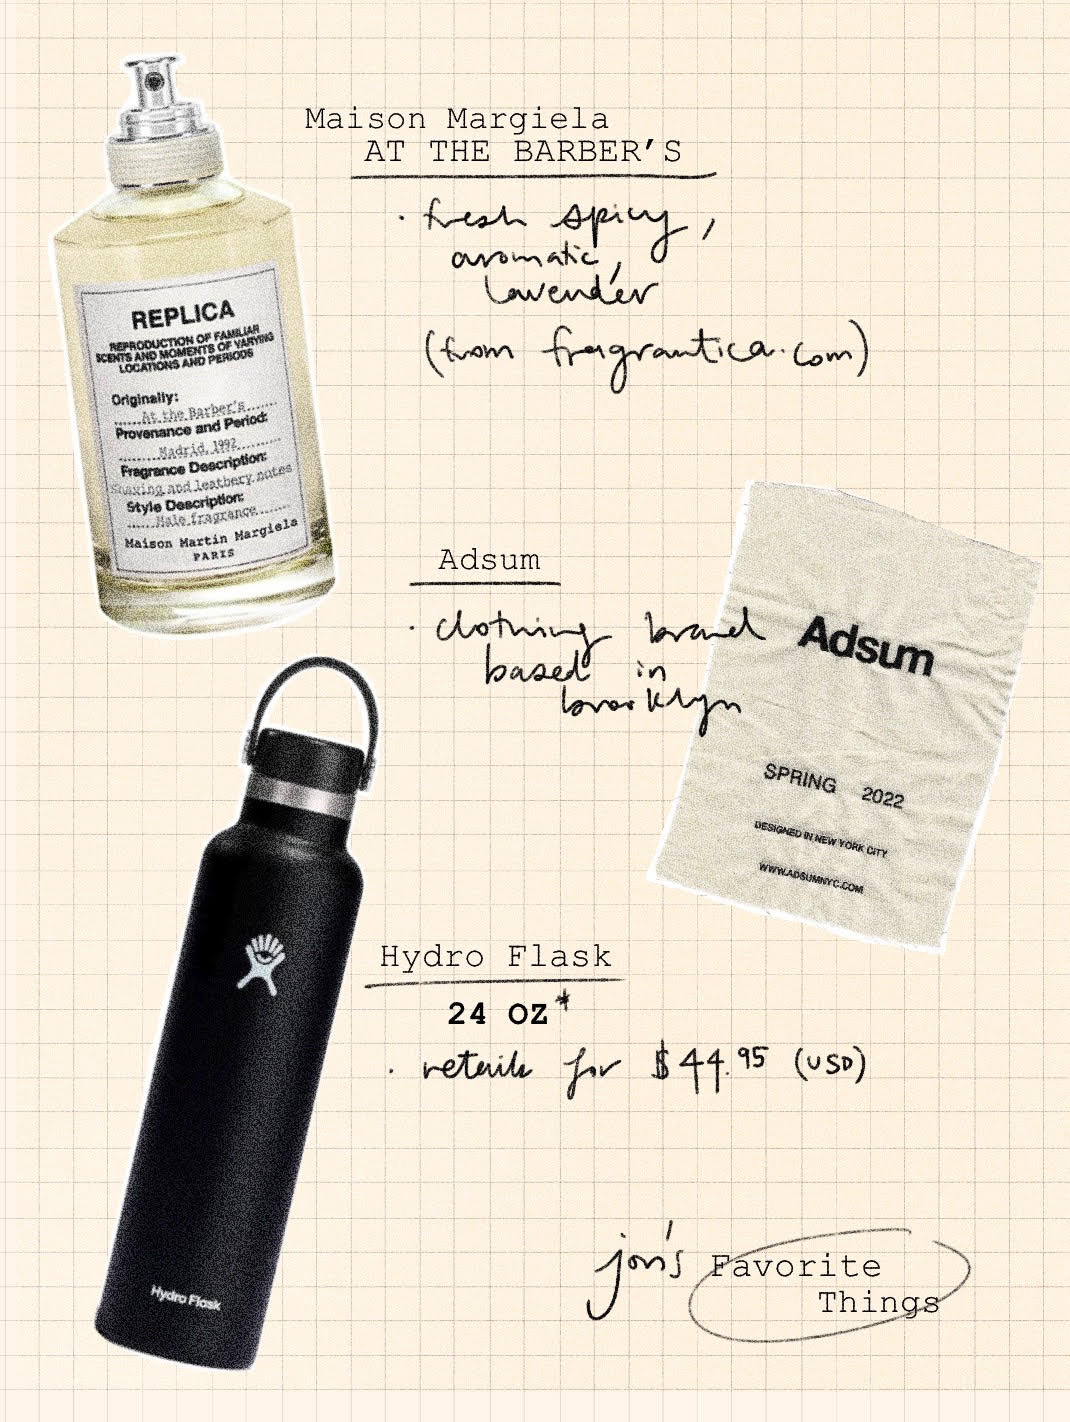 Maison Margiela
AT THE BARBER'S
· fresh spicy,
aromatic,
lavender
(from fragrantica.com)
REPLICA
REPRODUCTION OF FAMILIAR
SCENTS AND MOMENTS OF VARYING
LOCATIONS AND PERIODS
Originally:
At the Barber's
Provenance and Period:
Madrid, 1992
Fragrance Description:
Shaving and leathery notes
Style Description:
Male fragrance
Maison Martin Margiela
PARIS
Adsum
· clothing brand
based in
brooklyn
Adsum
SPRING 2022
DESIGNED IN NEW YORK CITY
WWW.ADSUMNYC.COM
Hydro Flask
24 OZ*
· retails for $44.95 (USD)
Hydro Flask
jon's Favorite
Things